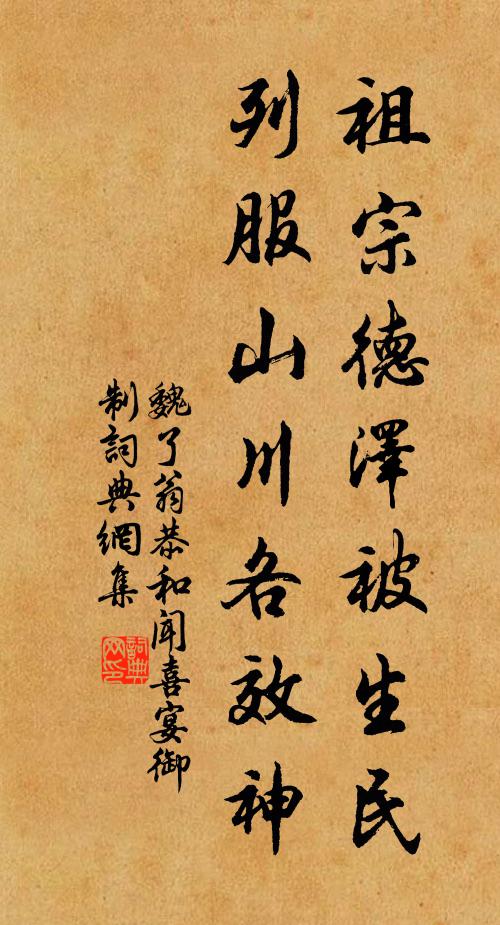 祖宗德澤被生民
列服山川各效神
魏了翁恭和闻喜宴御
制詞典網集
詞典网印